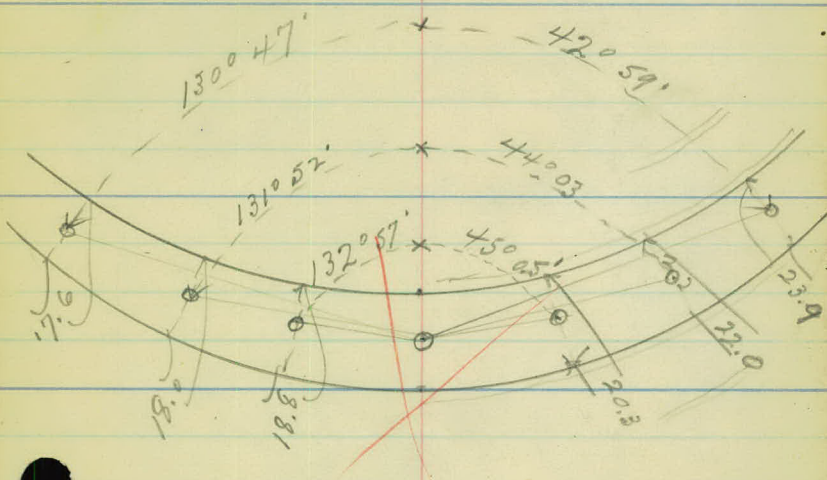 130° 47'
42° 59'
131° 52'
44° 03
132° 57'
45° 05'
17.6
18.0
18.8
20.3
22.0
23.9